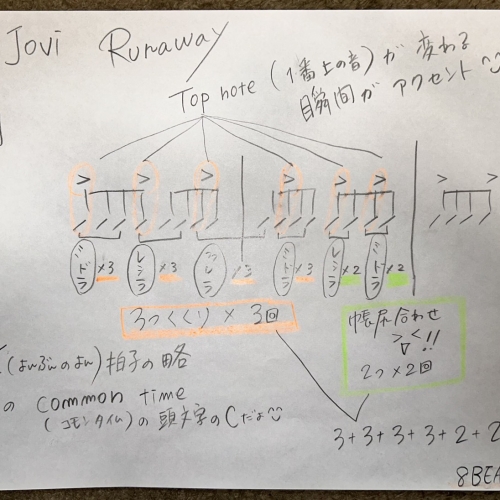 Jovi Runaway
Top note (1番上の音)が 変わる
瞬間が アクセント
> > > > > > >
ミドラ ×3 レシラ ×3 ×3 ミドラ ×3 レシラ ×2 ミドラ ×2
3つくくり × 3回
帳尻合わせ
><!!
2つ×2回
(よんぶんのよん)拍子の略
の common time
(コモンタイム)の頭文字のCだよ
3+3+3+3+2+2
8BEA